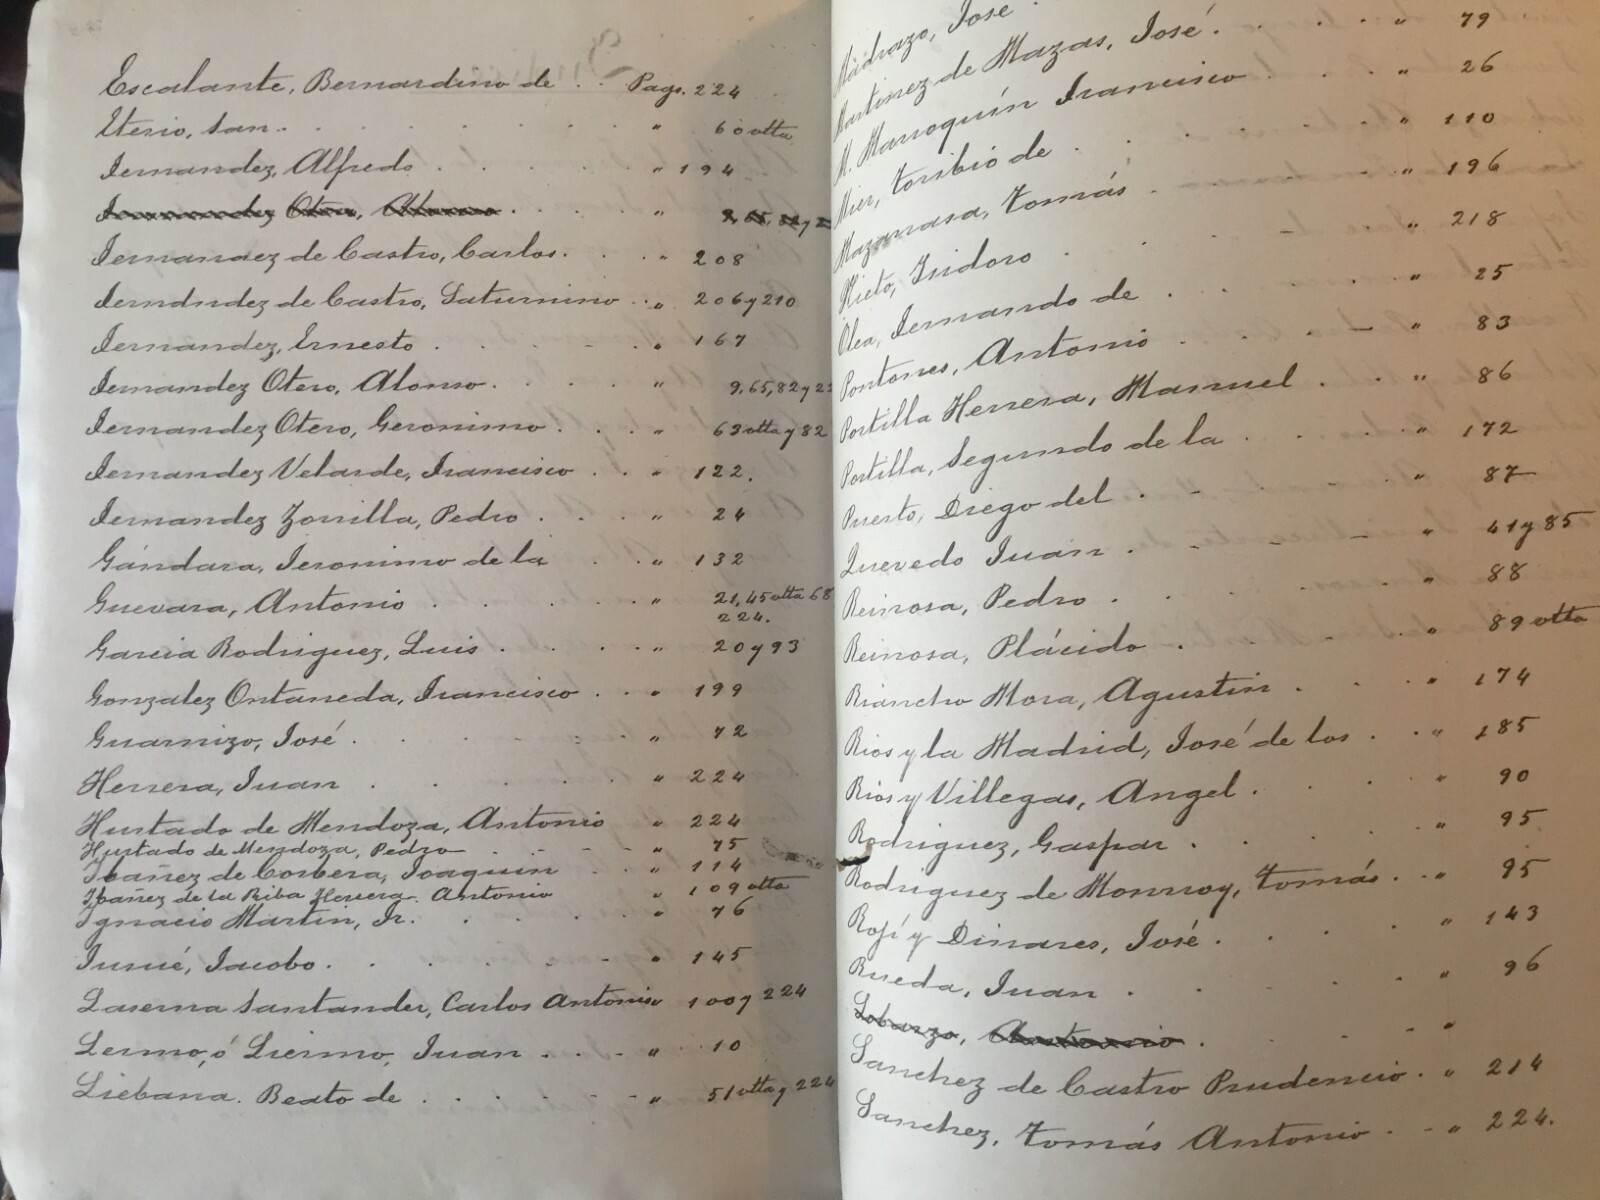 Escalante, Bernardino de . . Pags. 224
Eterio, San . . . . . . . " 60 vtta
Fernandez, Alfredo . . . . . " 194
Fernandez Otero, Alonso . . . . " 9, 65, 82 y 2
Fernandez de Castro, Carlos. . . " 208
Fernandez de Castro, Saturnino . . " 206 y 210
Fernandez, Ernesto . . . . - . " 167
Fernandez Otero, Alonso . . . . " 9, 65, 82 y 22
Fernandez Otero, Geronimo . . . " 63 vtta y 82
Fernandez Velarde, Francisco . . " 122.
Fernandez Zorrilla, Pedro . . . " 24
Gándara, Jeronimo de la . . " 132
Guevara, Antonio . . . . . " 21, 45 vtta 68
224.
Garcia Rodriguez, Luis . . . . " 20 y 93
Gonzalez Ontaneda, Francisco . . " 199
Guarnizo, José . . . . . . " 72
Herrera, Juan . . . . . " 224
Hurtado de Mendoza, Antonio " 224
Hurtado de Mendoza, Pedro . . . " 75
Ibañez de Corbera, Joaquin . . " 114
Ibañez de la Riba Herrera. Antonio " 109 vtta
Ignacio Martin, Fr. . . . . " 76
Jusué, Jacobo. . . . . . - " 145
Laserna Santander, Carlos Antonio " 100 y 224
Lermo, ó Liermo, Juan . . . - " 10
Liebana. Beato de . . . . . - " 51 vtta y 224
Madrazo, Jose .
Martinez de Mazas, José . . . . " 79
M. Marroquín Francisco . . . " 26
Mier, Toribio de . . . . . " 110
Mazarrasa, Tomás . . . . . " 196
Nieto, Isidoro . . . . - . " 218
Olea, Fernando de . . . . . " 25
Pontones, Antonio . . . . - " 83
Portilla Herrera, Manuel . . . " 86
Portilla, Segundo de la . . . . " 172
Puerto, Diego del . - . . . " 87
Quevedo Juan . - . - - " 41 y 85
Reinosa, Pedro . . . . . . " 88
Reinosa, Plácido . . . - . " 89 vtta
Riancho Mora, Agustin . . . " 174
Rios y la Madrid, José de los . . " 185
Rios y Villegas, Angel . . . . " 90
Rodriguez, Gaspar . . . . " 95
Rodriguez de Monroy, Tomás . . " 95
Rojí y Dinares, José . . . . " 143
Rueda, Juan . . . . . . " 96
Lobarzo, Antonio . . . . "
Sanchez de Castro Prudencio . " 214
Sanchez, Tomás Antonio . - " 224.